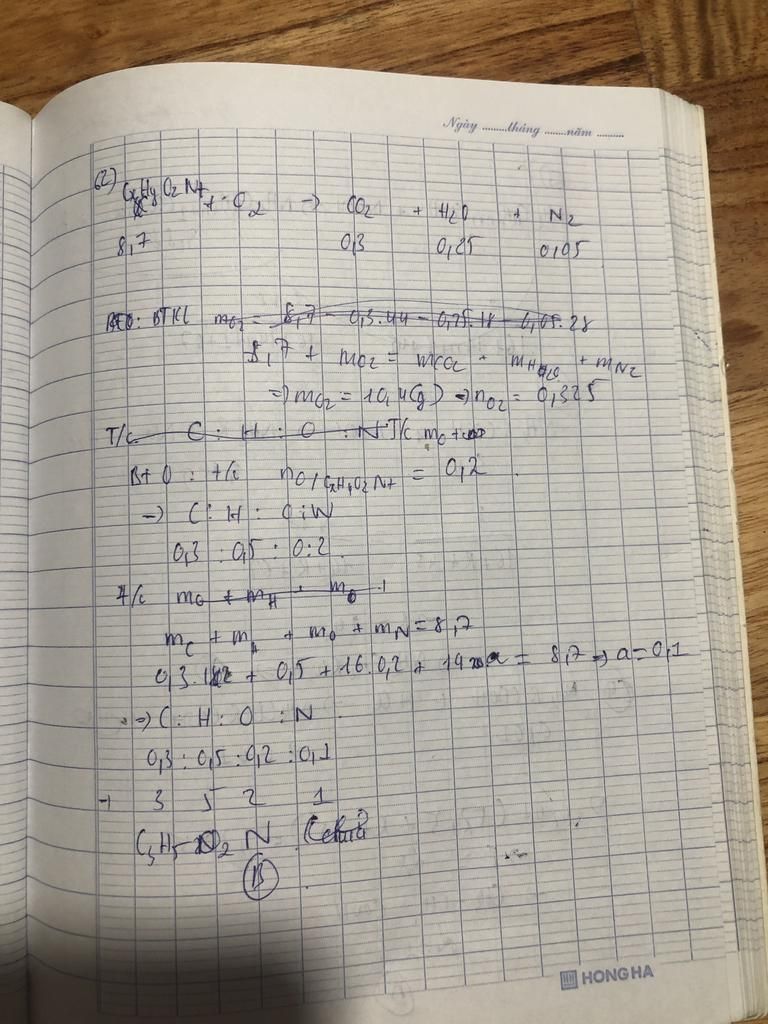 Ngày ......... tháng ........ năm ..........
62) CxHyO2Nt + O2 → CO2 + H2O + N2
8,7 0,3 0,25 0,05
BTKL mO2 = 8,7 - 0,3.44 - 0,25.18 - 0,05.28
8,7 + mO2 = mCO2 + mH2O + mN2
=> mO2 = 10,4(g) => nO2 = 0,325
T/c C : H : O : N T/c mO +
Bt O : t/c nO/CxHyO2Nt = 0,2
→ C : H : O : N
0,3 : 0,5 : 0,2
T/c mC + mH + mO +
mC + mH + mO + mN = 8,7
0,3.12 + 0,5 + 16.0,2 + 14 a = 8,7 => a = 0,1
=> C : H : O : N
0,3 : 0,5 : 0,2 : 0,1
→ 3 5 2 1
C3H5O2N
B
HH HONG HA